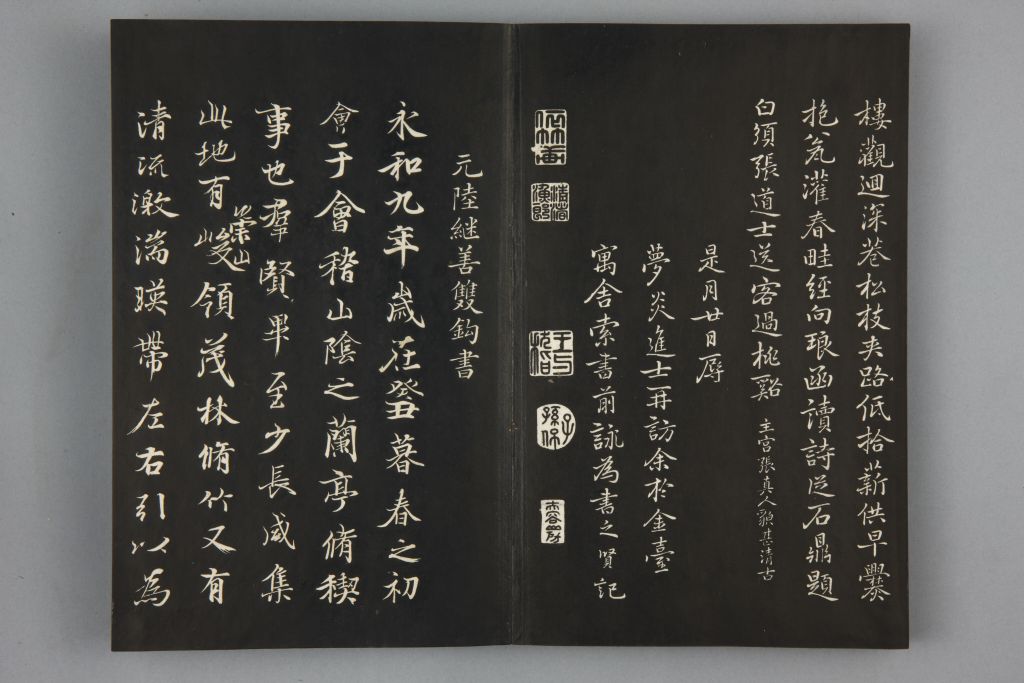 樓觀迴深巷松枝夾路低拾薪供早爨
抱瓮灌春畦經向琅函讀詩從石鼎題
白須張道士送客過桃谿 主宮張真人貌甚清古
是月廿日辱
夢炎進士再訪余於金臺
寓舍索書前詠為書之賢記
子孫保
元陸继善雙鈎書
永和九年歲在癸丑暮春之初
會于會稽山陰之蘭亭脩稧
事也羣賢畢至少長咸集
此地有崇山峻領茂林脩竹又有
清流激湍暎帶左右引以為